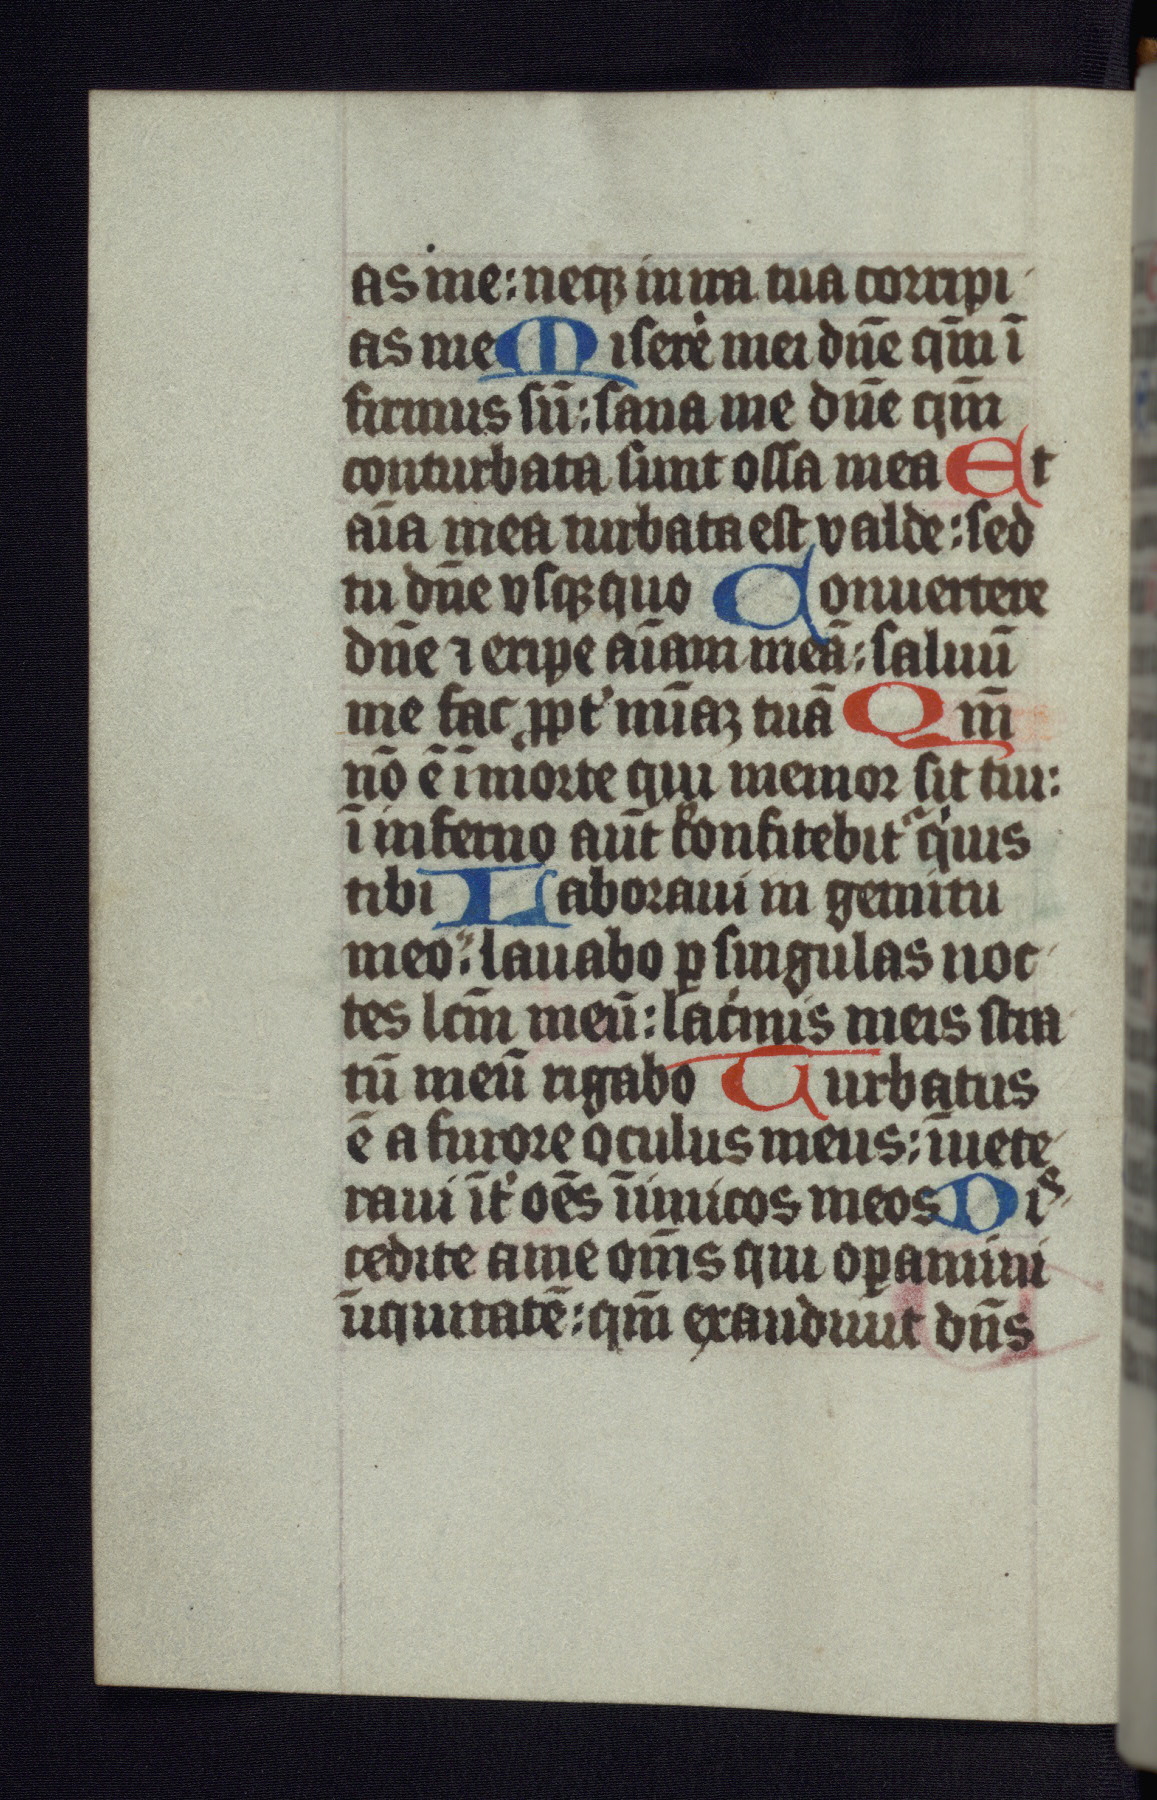 as me: neqꝫ in ira tua corripi
as me Misere᷑ mei dn̄e qm̄ ī
firmus sū: sana me dn̄e qm̄
conturbata sunt ossa mea Et
aīa mea turbata est valde: sed
tu dn̄e vsqꝫ quo Conuertere
dn̄e ⁊ eripe aīam meā: saluū
me fac ꝓpt᷑ mīaꝫ tuā Qm̄
nō ē ī morte qui memor sit tui:
ī inferno aūt confitebit᷑ quis
tibi Laboraui in gemitu
meo: lauabo ꝑ singulas noc
tes lcm̄ meū: lacͥmis meis stra
tū meū rigabo Turbatus
ē a furore oculus meus: īuete
raui īt᷑ oēs īimicos meos Dis
cedite a me om̄s qui oꝑamini
īiquitatē: qm̄ exaudiuit dn̄s